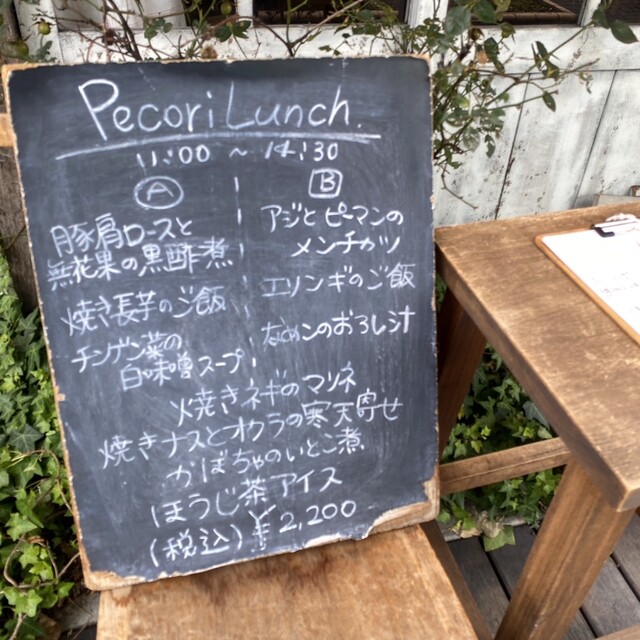 Pecori Lunch.
11:00 ~ 14:30
A
豚肩ロースと
無花果の黒酢煮
焼き長芋のご飯
チンゲン菜の
白味噌スープ
B
アジとピーマンの
メンチカツ
エリンギのご飯
のおろし汁
焼きネギのマリネ
焼きナスとオクラの寒天寄せ
かぼちゃのいとこ煮
ほうじ茶アイス
(税込) ¥2,200